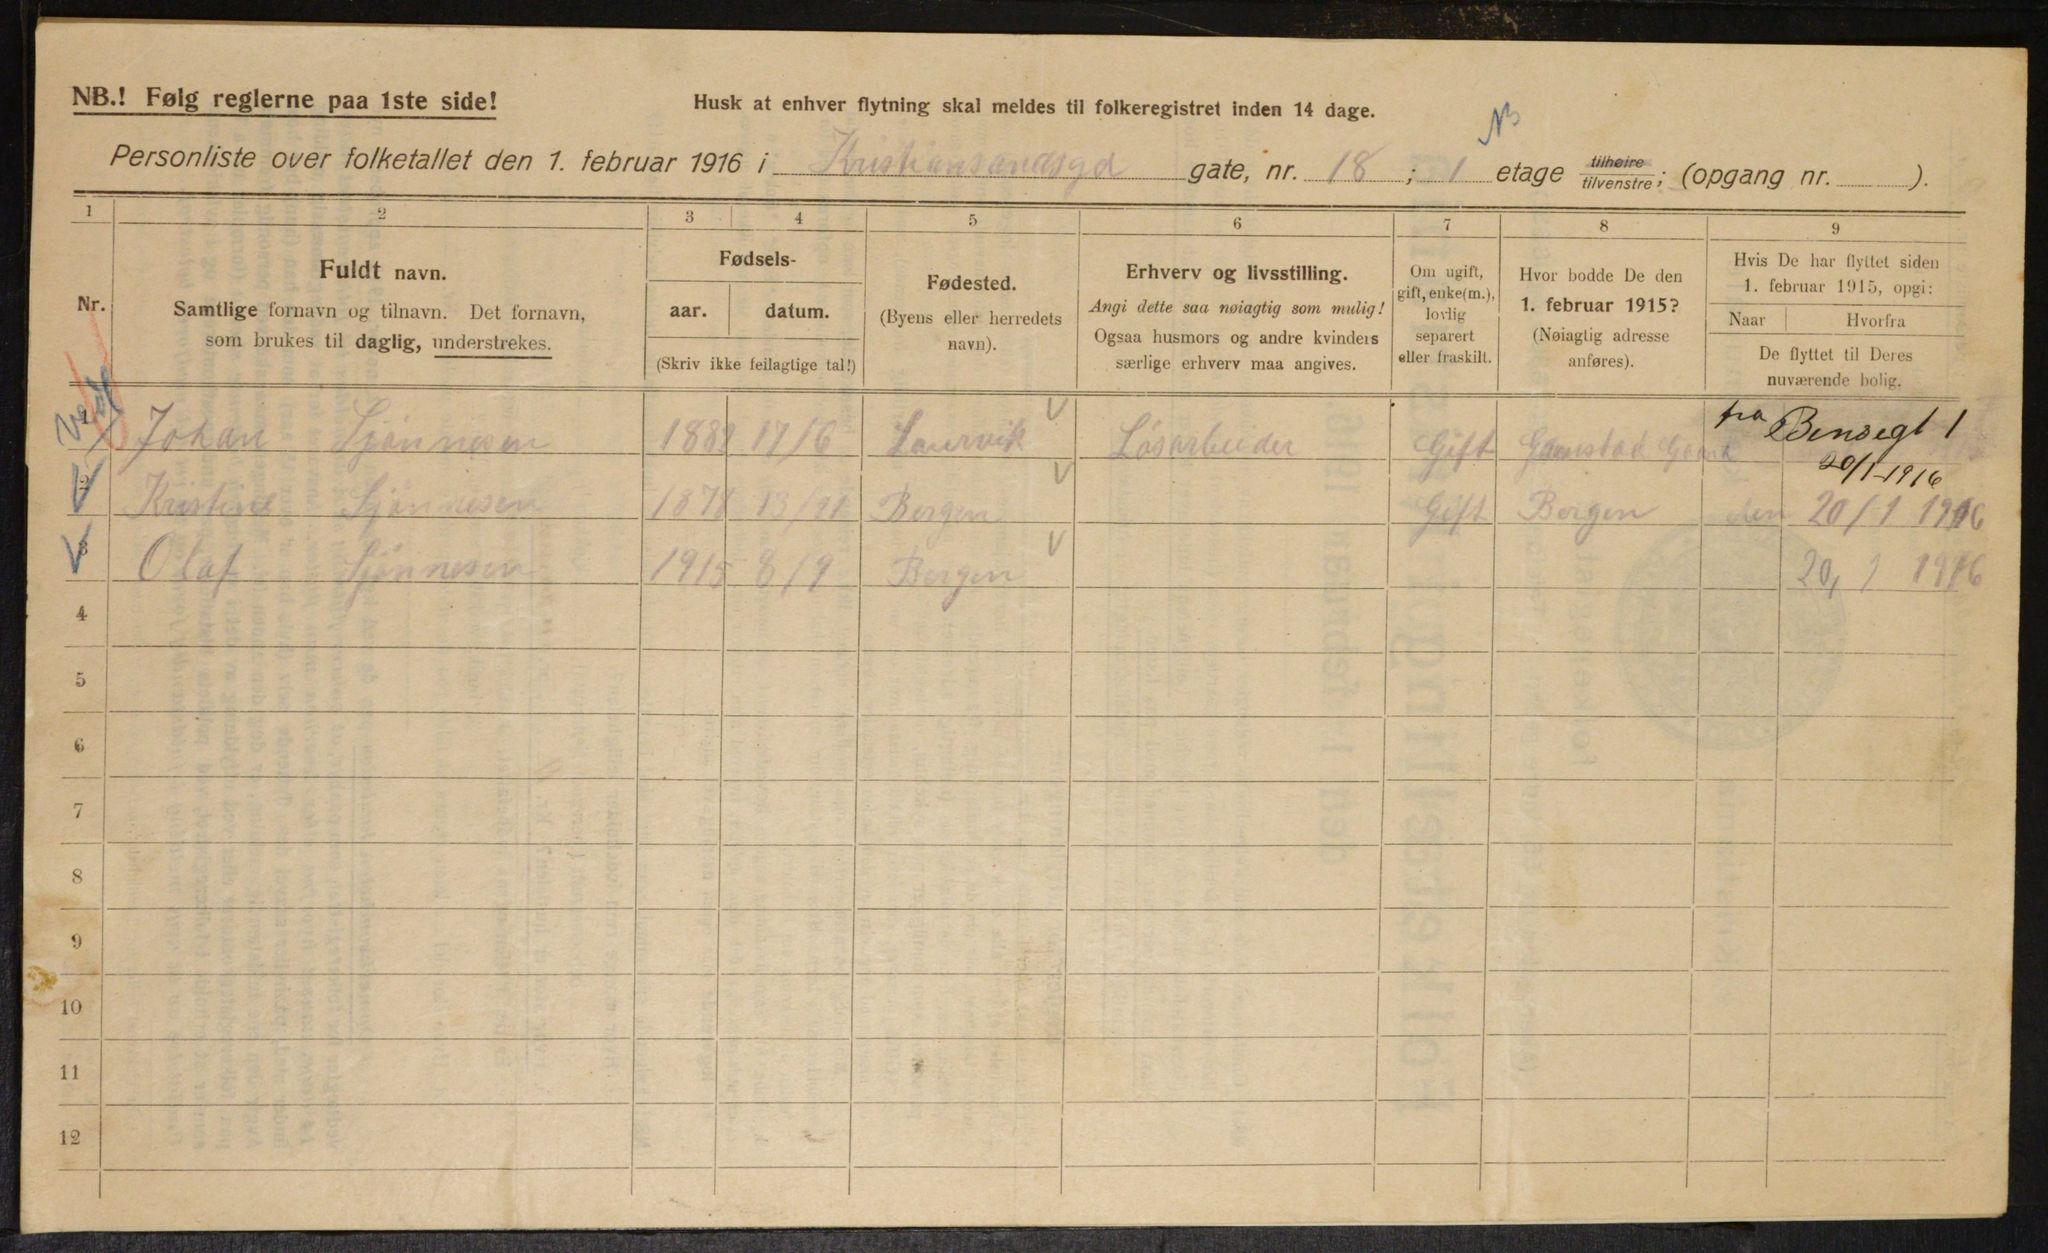 NB.! Følg reglerne paa 1ste side!
Husk at enhver flytning skal meldes til folkeregistret inden 14 dage.
Personliste over folketallet den 1. februar 1916 i Kristiansandsgd gate, nr. 18 ; 1 etage tilhøire/tilvenstre; (opgang nr. ).
1 2 3 4 5 6 7 8 9
Nr.
Fuldt navn.
Samtlige fornavn og tilnavn. Det fornavn,
som brukes til daglig, understrekes.
Fødsels-
aar. datum.
(Skriv ikke feilagtige tal!)
Fødested.
(Byens eller herredets
navn).
Erhverv og livsstilling.
Angi dette saa nøiagtig som mulig!
Ogsaa husmors og andre kvinders
særlige erhverv maa angives.
Om ugift,
gift, enke(m.),
lovlig
separert
eller fraskilt.
Hvor bodde De den
1. februar 1915?
(Nøiagtig adresse
anføres).
Hvis De har flyttet siden
1. februar 1915, opgi:
Naar Hvorfra
De flyttet til Deres
nuværende bolig.
1 Johan Sjønnesen 17/6 Laurvik Løsarbeider Gift fra Bensegt 1
20/1-1916
2 Kristine Sjønnesen Bergen Gift Bergen den 20/1 1916
3 Olaf Sjønnesen 1915 8/9 Bergen 20/1 1916
4
5
6
7
8
9
10
11
12